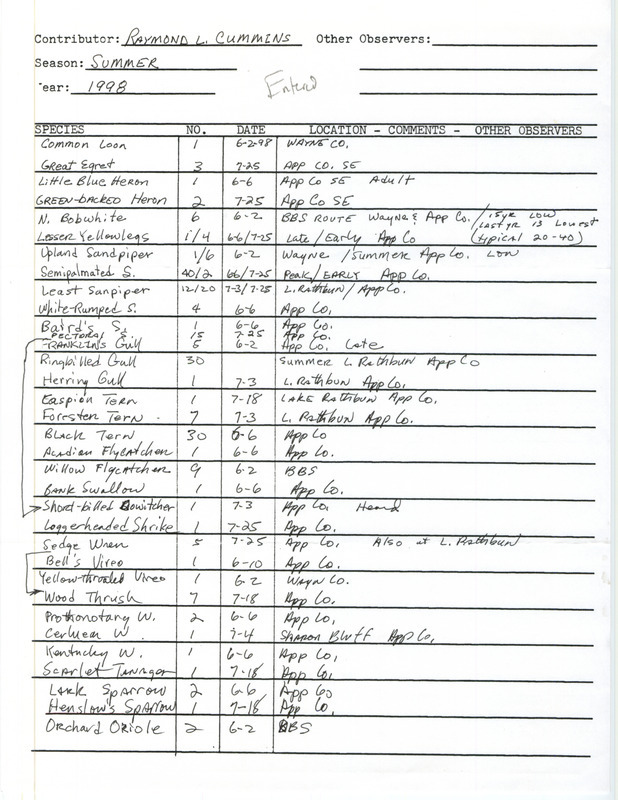 Contributor: RAYMOND L. CUMMINS Other Observers:
Season: SUMMER
Year: 1998
Entered
SPECIES NO. DATE LOCATION - COMMENTS - OTHER OBSERVERS
Common Loon 1 6-2-98 WAYNE CO.
Great Egret 3 7-25 APP CO. SE
Little Blue Heron 1 6-6 App Co SE Adult
GREEN-backed Heron 2 7-25 App Co SE
N. Bobwhite 6 6-2 BBS ROUTE Wayne & App Co. / 15yr LOW
Last yr 13 Lowest
Lesser Yellowlegs 1/4 6-6/7-25 Late/Early App Co (typical 20-40)
Upland Sandpiper 1/6 6-2 Wayne /Summer App Co. LOW
Semipalmated S. 40/2 66/7-25 Peak/EARLY App Co.
Least Sanpiper 12/20 7-3/7-25 L. Rathbun/App Co.
White-Rumped S. 4 6-6 App Co.
Baird's S. 1 6-6 App Co.
PECTORAL S. 15 7-25 App Co.
FRANKLIN'S Gull 5 6-2 App Co. Late
Ringbilled Gull 30 Summer L. Rathbun App Co
Herring Gull 1 7-3 L. Rathbun App Co.
Caspion Tern 1 7-18 LAKE Rathbun App Co.
Forester Tern. 7 7-3 L. Rathbun App Co.
Black Tern 30 6-6 App Co
Acadian Flycatcher 1 6-6 App Co.
Willow Flycatcher 9 6-2 BBS
Bank Swallow 1 6-6 App Co.
Short-billed Dowitcher 1 7-3 App Co. Heard
Loggerheaded Shrike 1 7-25 App Co.
Sedge Wren 5 7-25 App Co. Also at L. Rathbun
Bell's Vireo 1 6-10 App Co.
Yellow-throated Vireo 1 6-2 Wayn Co.
Wood Thrush 7 7-18 App Co.
Prothonotary W. 2 6-6 App Co.
Cerulean W. 1 7-4 Sharon Bluff App Co.
Kentucky W. 1 6-6 App Co.
Scarlet Tanager 1 7-18 App Co.
Lark Sparrow 2 6-6 App Co
Henslow's Sparrow 1 7-18 App Co.
Orchard Oriole 2 6-2 BBS